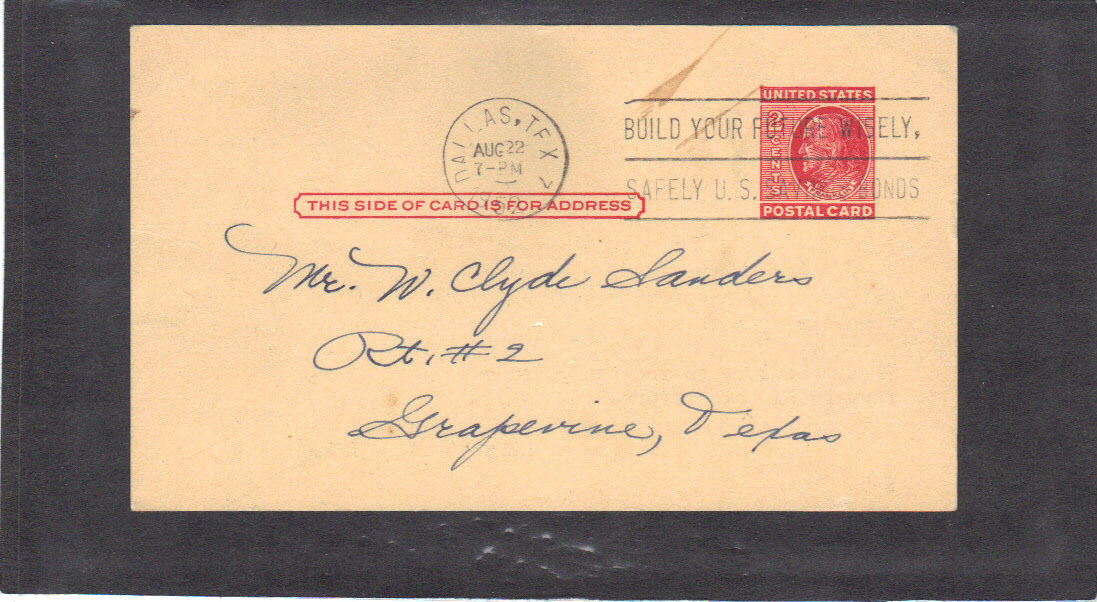 UNITED STATES
2 CENTS
FRANKLIN
POSTAL CARD
DALLAS, TEX
AUG 22
7-PM
BUILD YOUR FUTURE WISELY,
SAFELY U. S. SAVINGS BONDS
THIS SIDE OF CARD IS FOR ADDRESS
Mr. W. Clyde Sanders
Rt. #2
Grapevine, Texas